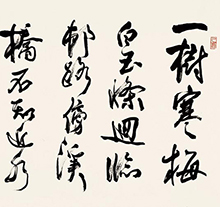 一樹寒梅
白玉條迴臨
邨路傍溪
橋不知近水